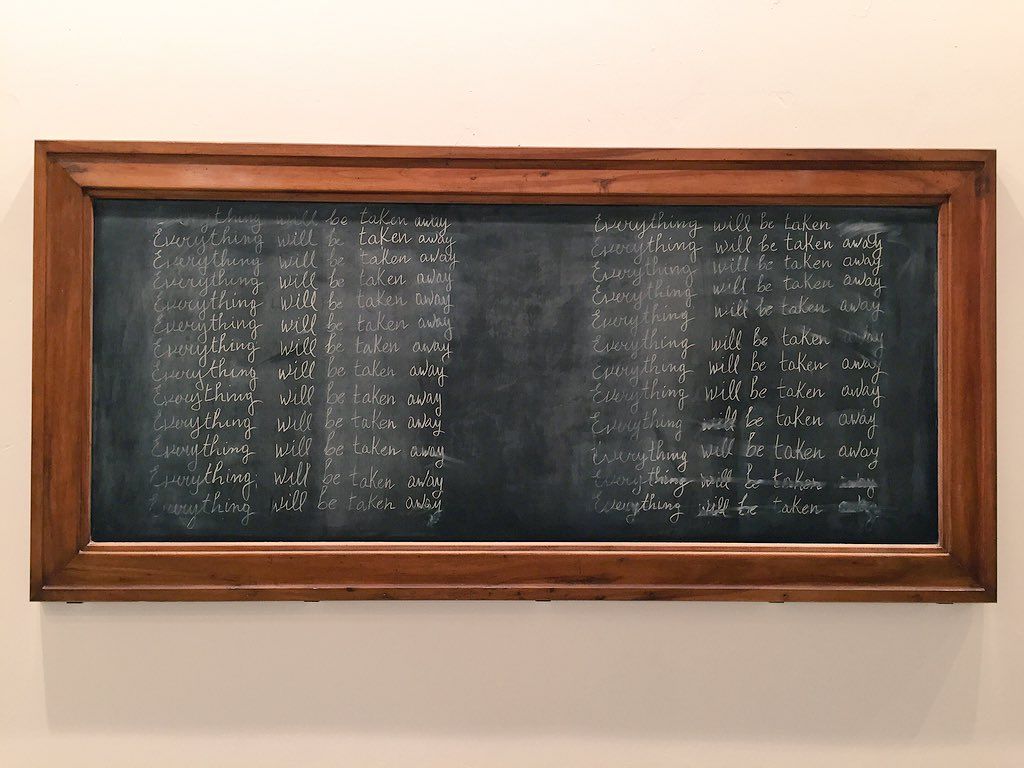 Everything will be taken away
Everything will be taken away
Everything will be taken away
Everything will be taken away
Everything will be taken away
Everything will be taken away
Everything will be taken away
Everything will be taken away
Everything will be taken away
Everything will be taken away
Everything will be taken away
Everything will be taken away
Everything will be taken away
Everything will be taken
Everything will be taken away
Everything will be taken away
Everything will be taken away
Everything will be taken away
Everything will be taken away
Everything will be taken away
Everything will be taken away
Everything will be taken away
Everything will be taken away
Everything will be taken away
Everything will be taken